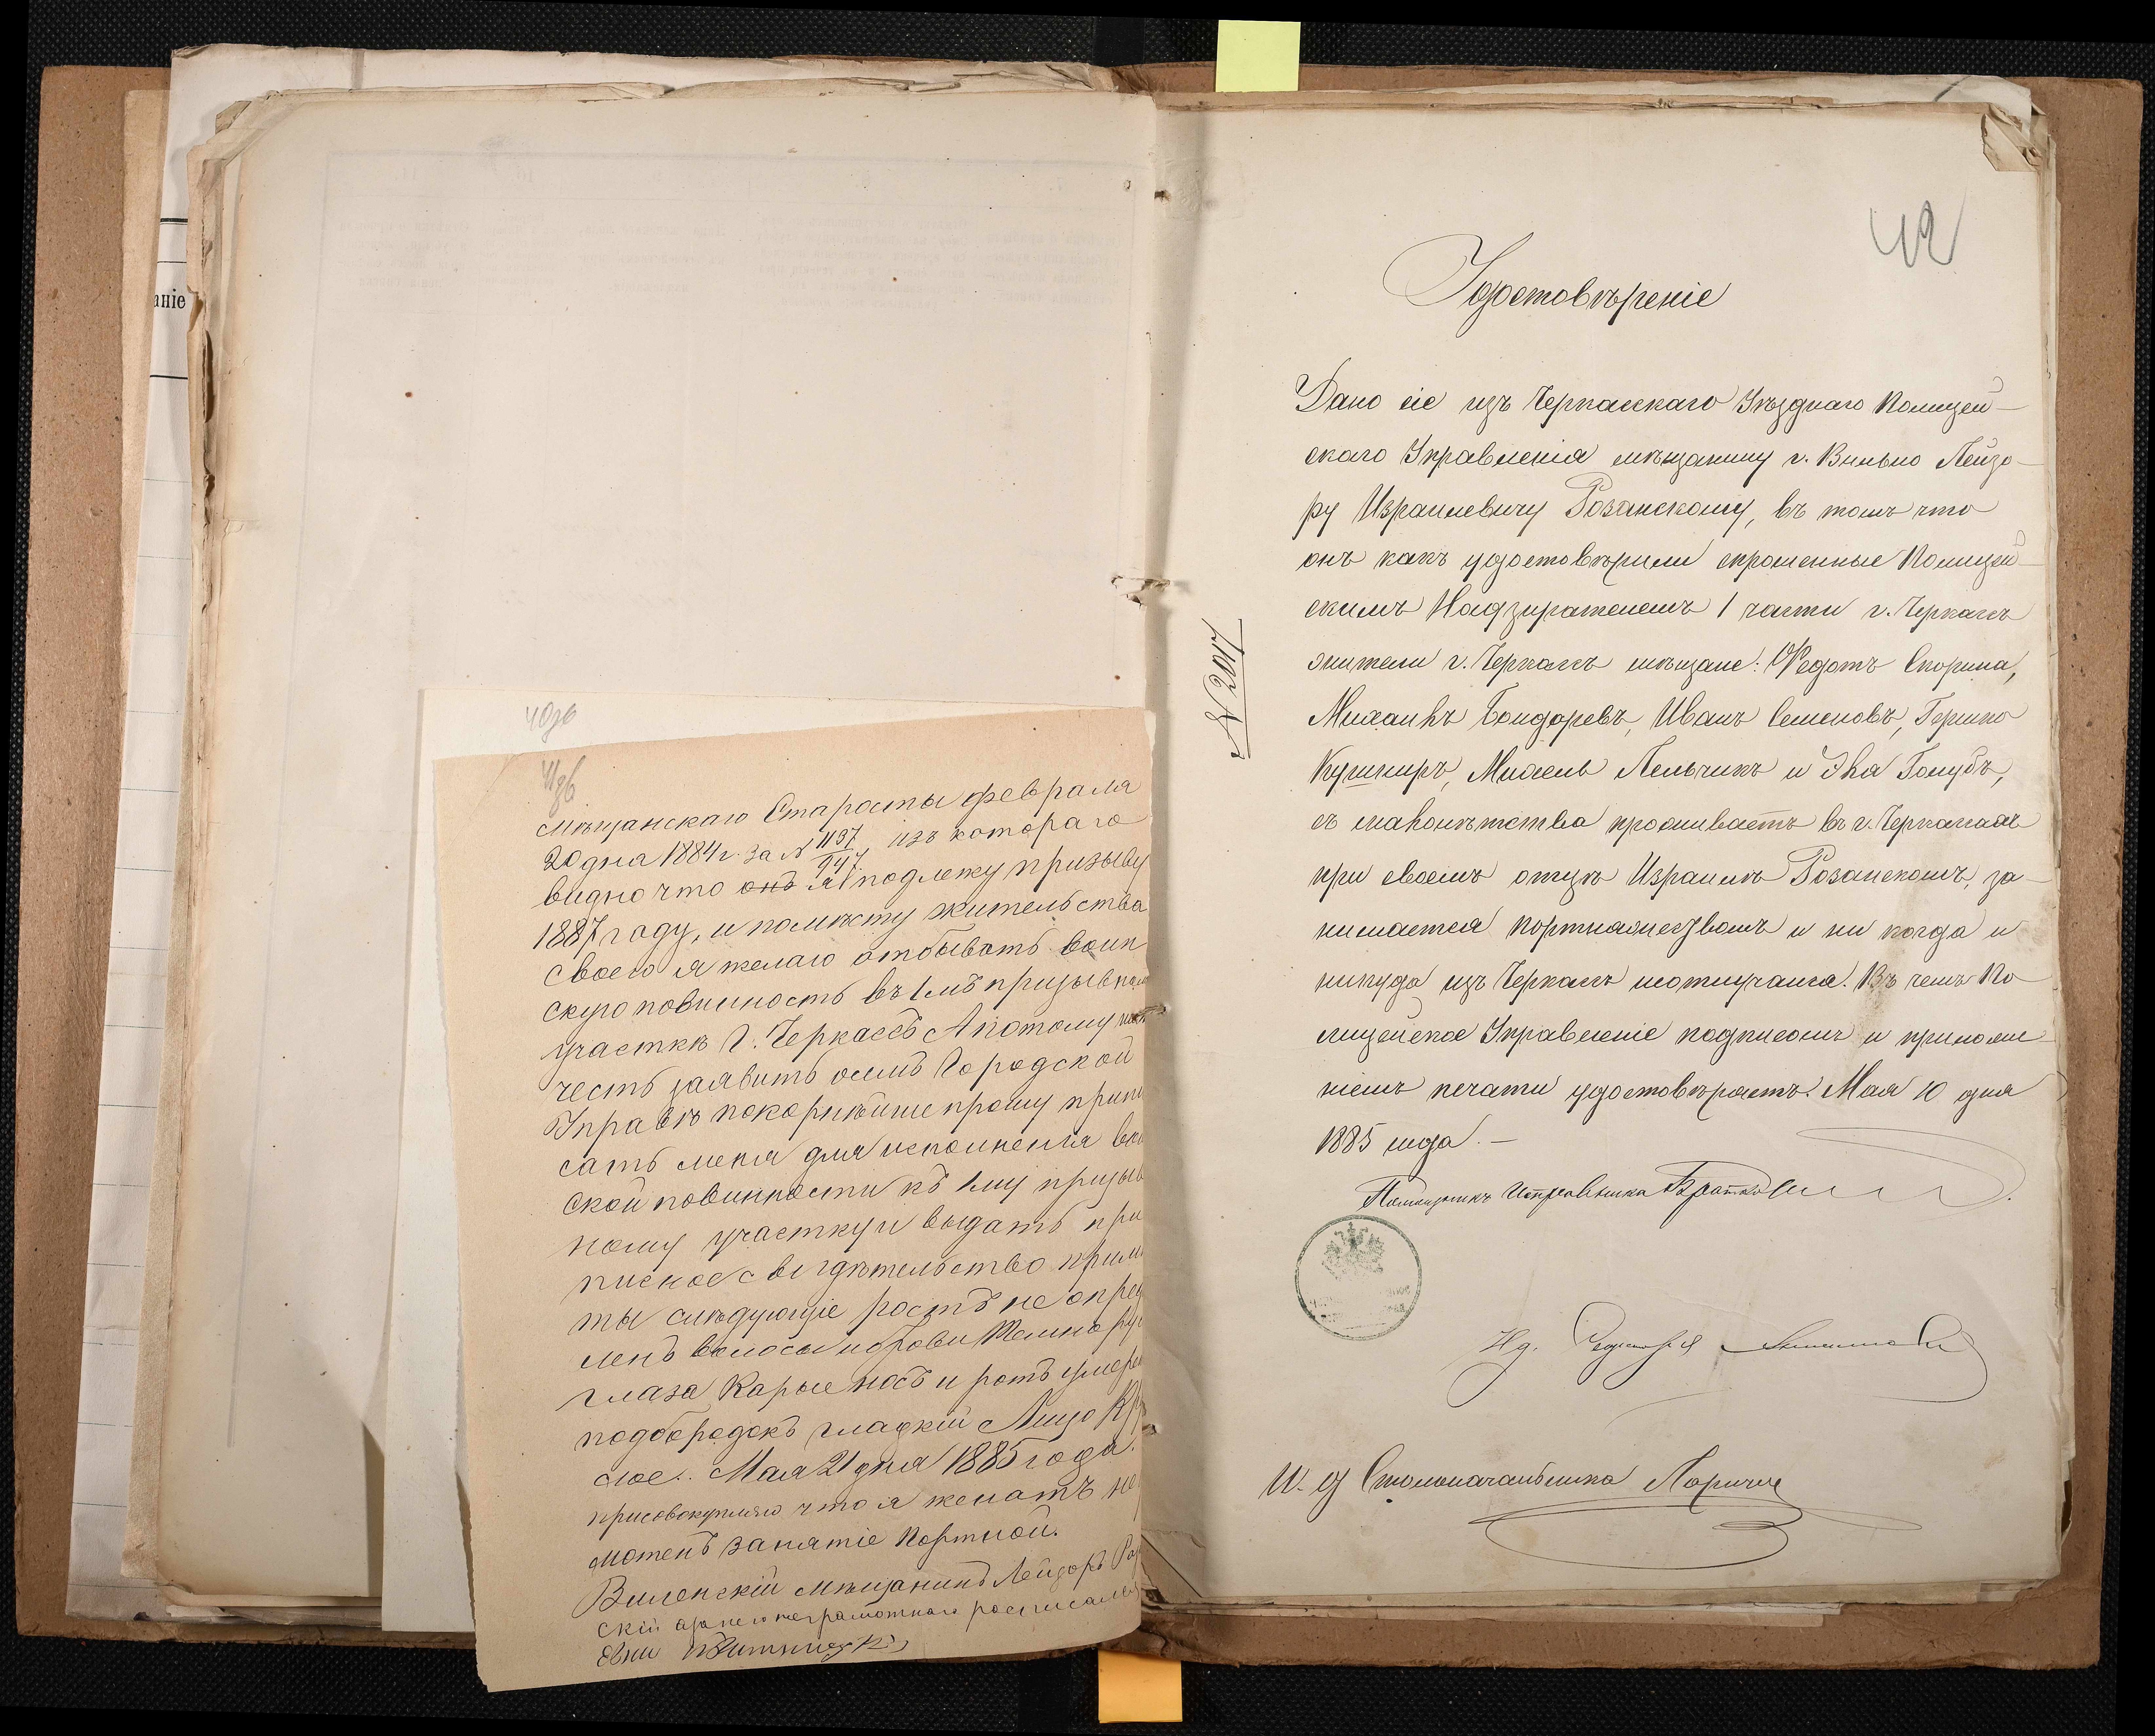 аніе
40зв
41зв
мѣщанскаго Старосты февраля
20 дня 1884 г. за № 1137/947, изъ котораго
видно что онъ я подлежу призыву
1887 году, и помѣсту жительства
своего я желаю отбывать воин
скую повинность въ 1мъ призывном
участкѣ г. Черкассъ А потому
честь заявить о семъ Городской
Управѣ покорнѣйше прошу припи
сать меня для исполненія вои
ской повинности къ 1му призыв
ному участку и выдать при
писное свидѣтельство примѣ
ты слѣдующіе ростъ не опред
ленъ волосы и брови темнору
глаза карые носъ и ротъ умѣре
подбородокъ гладкій Лицо Кр
слое.. Мая 21 дня 1885 года.
присовокупляю что я женатъ не
мотенъ занятіе Портной.
Виленскій мѣщанинъ Лейзоръ Роз
скій а за него неграмотнаго росписался
42
Удостовѣреніе
№ 2017
Дано сіе изъ Черкасскаго Уѣзднаго Полицей-
скаго Управленія мѣщанину г. Вильно Лейзо-
ру Израилевичу Розанскому, въ томъ что
онъ какъ удостовѣрили спрошенные Полицей-
скимъ Надзирателемъ 1 части г. Черкассъ
жители г. Черкассъ мѣщане: Ѳедотъ Скорина,
Михаилъ Бондаревъ, Иванъ Семеновъ, Гершко
Кушниръ, Михель Пельчикъ и Эля Голубъ,
съ малолѣтства проживаетъ въ г. Черкассахъ
при своемъ отцѣ Израилѣ Розанскомъ, за-
нимается портняжествомъ и ни когда и
никуда изъ Черкассъ неотлучался. Въ чемъ По-
лицейское Управленіе подписомъ и приложе-
ніемъ печати удостовѣряетъ. Мая 10 дня
1885 года. —
Помощникъ Исправника
Ид. Секретаря
И. д Столоначальника